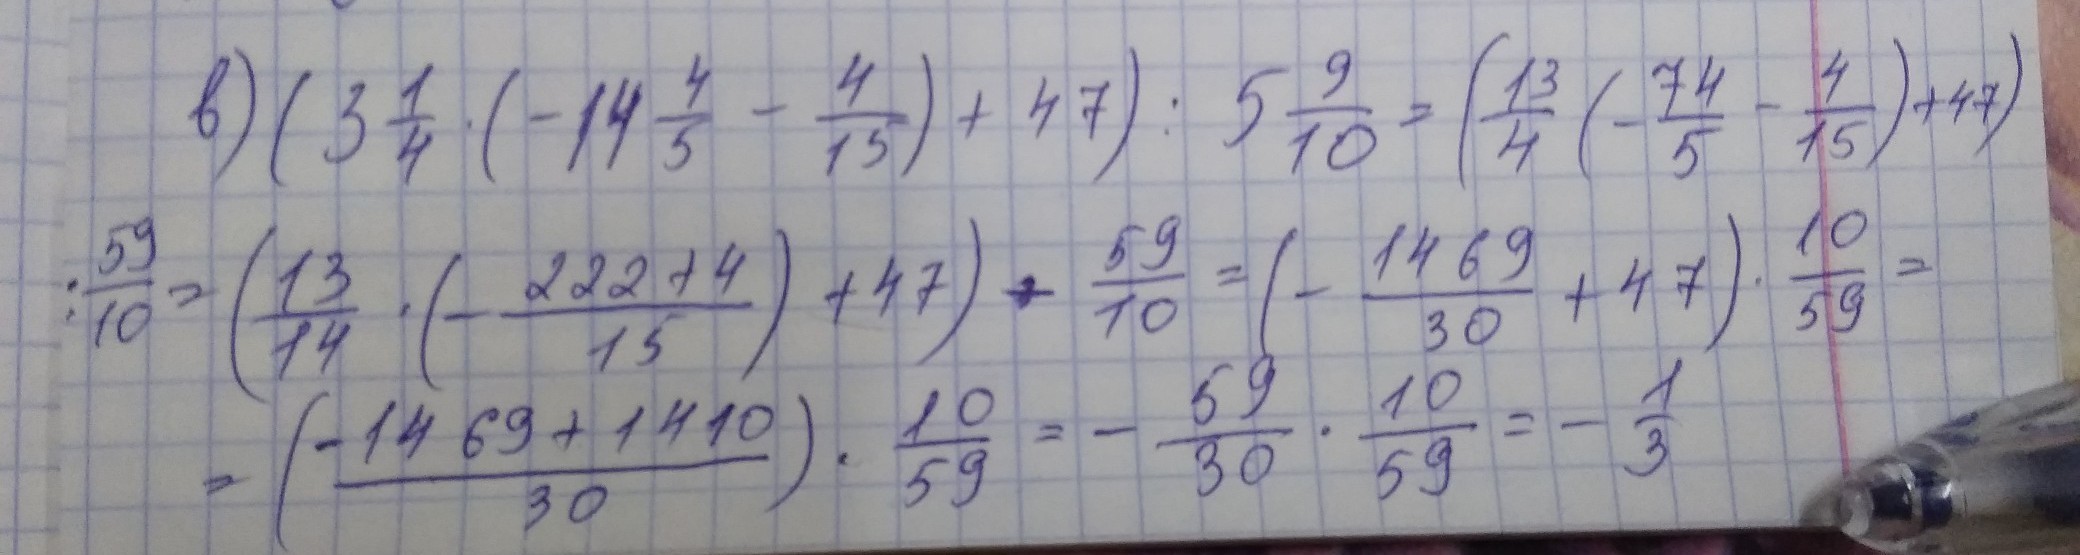 в) (3 1/4 · (-14 4/5 - 4/15) + 47) : 5 9/10 = (13/4 (- 74/5 - 4/15) + 47)
: 59/10 = (13/14 · (- 222+4/15) + 47) : 59/10 = (- 1469/30 + 47) · 10/59 =
= (-1469 + 1410/30) · 10/59 = - 59/30 · 10/59 = - 1/3